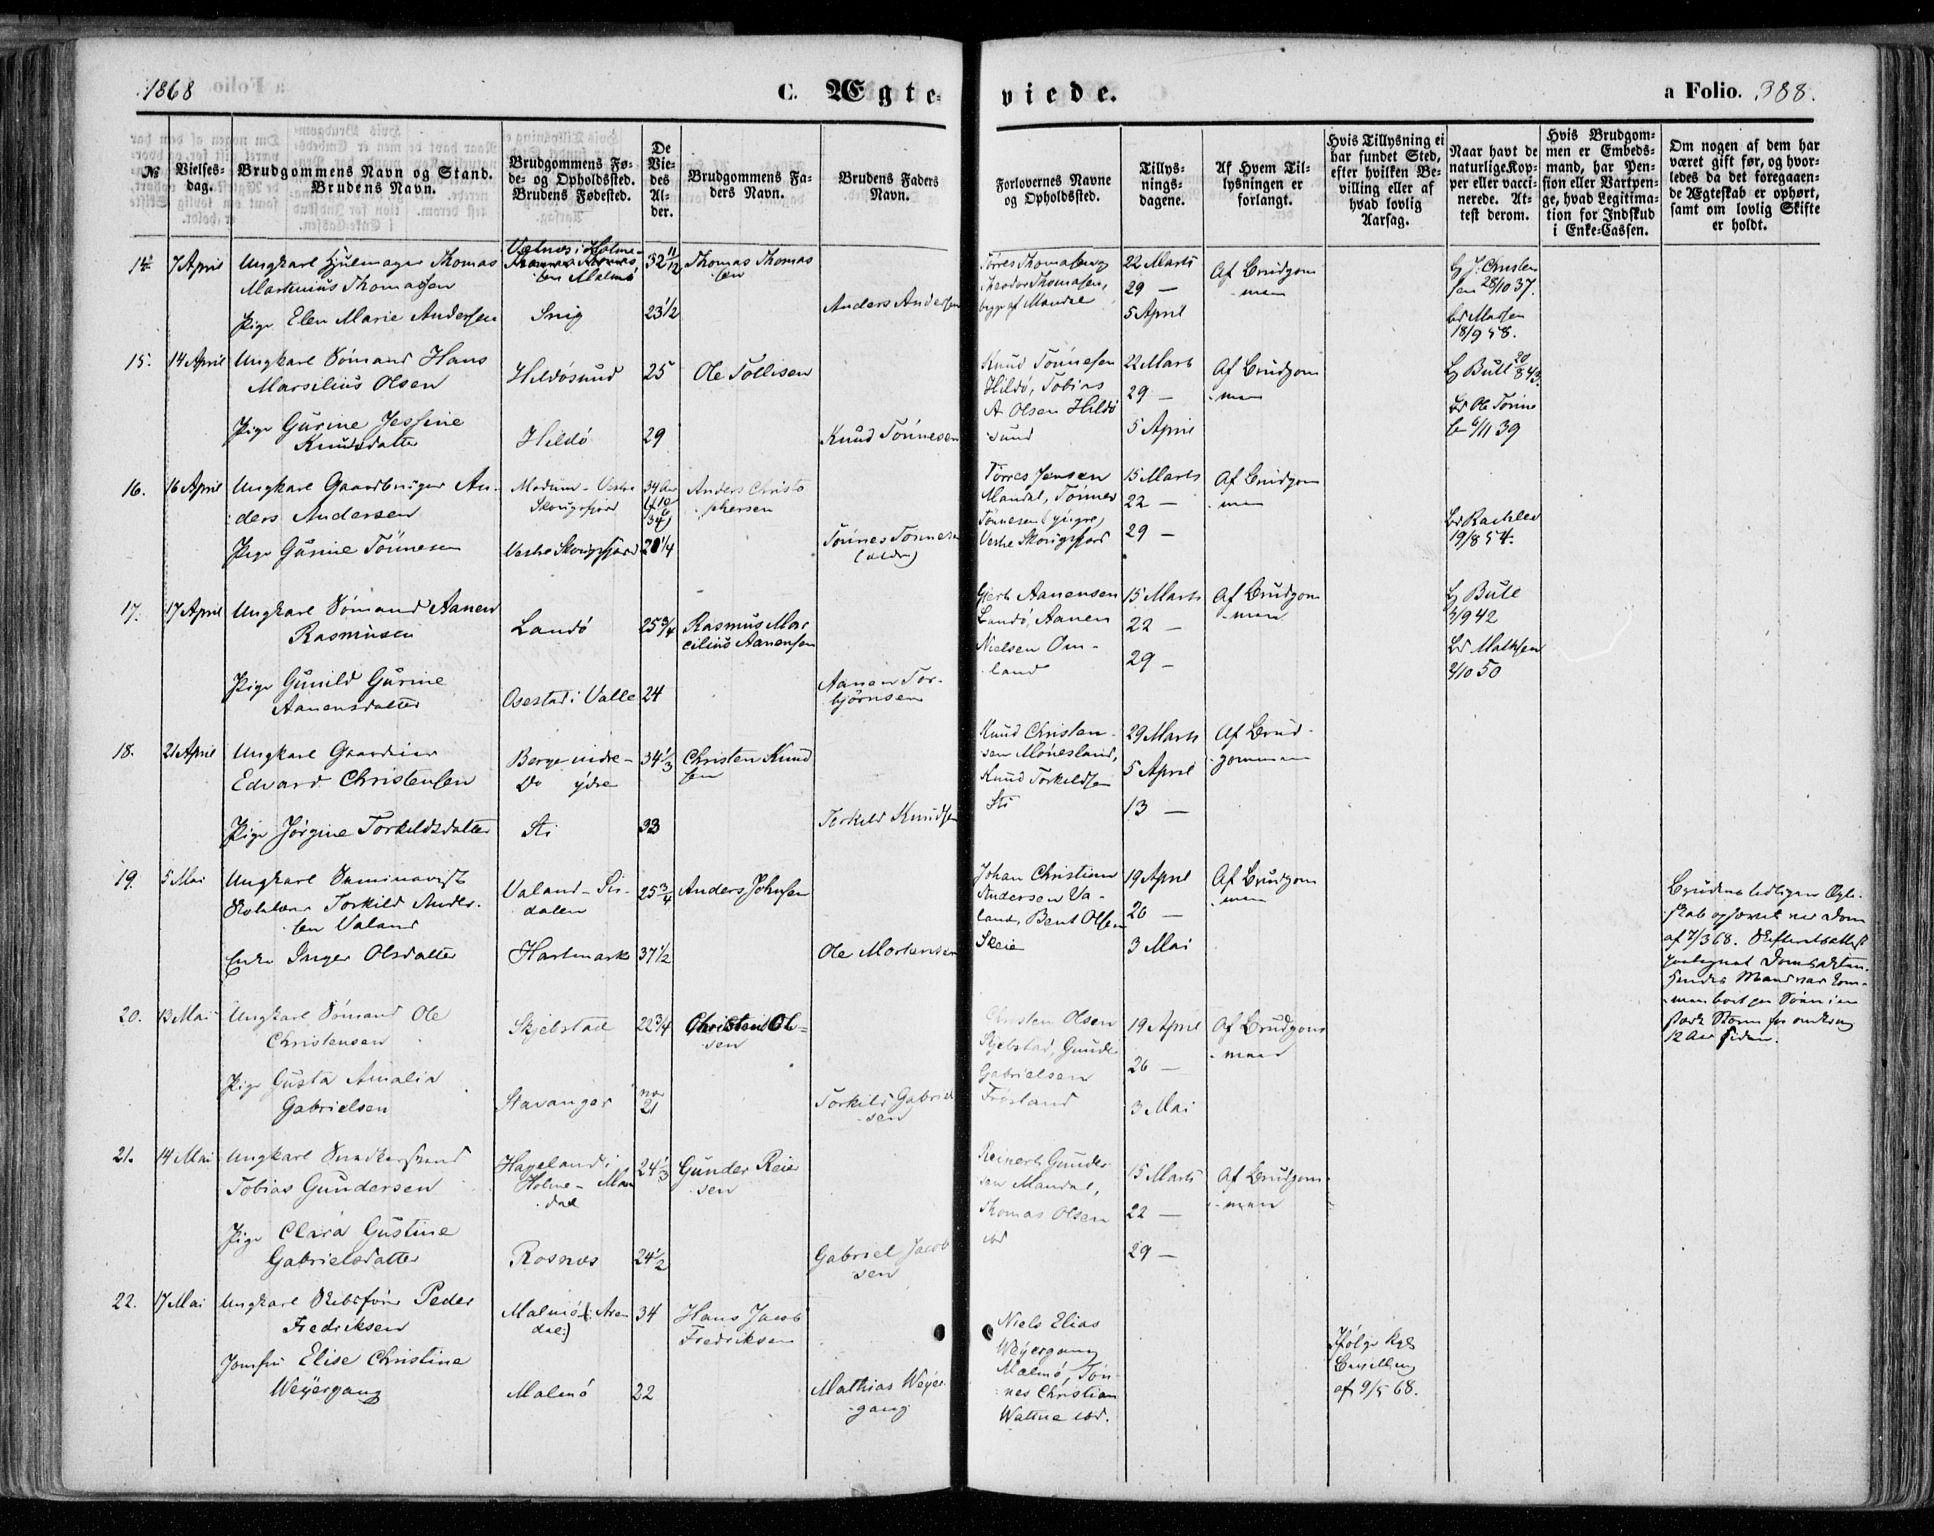 1868
C. Ægte-
viede.
a Folio. 388.
№
Vielses-
dag.
Brudgommens Navn og Stand.
Brudens Navn.
Brudgommens Fø-
de- og Opholdssted.
Brudens Fødested.
De
Vie-
des
Al-
der.
Brudgommens Fa-
ders Navn.
Brudens Faders
Navn.
Forlovernes Navne
og Opholdssted.
Tillys-
nings-
dagene.
Af Hvem Til-
lysningen er
forlangt.
Hvis Tillysning ei
har fundet Sted,
efter hvilken Be-
villing eller af
hvad lovlig
Aarsag.
Naar havt de
naturlige Kop-
per eller vacci-
nerede. At-
test derom.
Hvis Brudgom-
men er Embeds-
mand, har Pen-
sion eller Vartpen-
ge, hvad Legitima-
tion for Indskud
i Enke-Cassen.
Om nogen af dem har
været gift før, og hvor-
ledes da det foregaaen-
de Ægteskab er ophørt,
samt om lovlig Skifte
er holdt.
14
7 April
Ungkarl Hjulmager Thomas
Martinius Thomassen
Holme-
Malmø
32 11/12
Thomas Thomas
sen
Torres Thomassen og
Theodor Thomassen,
begge af Mandal
22 Marts
29 —
5 April
Af Brudgom
men
Bg J. Christen
sen 28/10 37.
Pige Elen Marie Andersen
Snig
23 1/2
Anders Andersen
Br Madsen
18/9 58.
15.
14 April
Ungkarl Sømand Hans
Marselius Olsen
Hildøsund
25
Ole Tollisen
Knud Tønnesen
Hildø, Tobias
A Olsen Hildø
sund
22 Marts
29 —
5 April
Af Brudgom
men
Bg Bull 20/8 43.
Pige Gurine Jessine
Knudsdatter
Hildø
29
Knud Tønnesen
Br Ole Tønne
sen 6/11 39
16.
16 April
Ungkarl Gaardbruger An-
ders Andersen
Vestre
Skougsfjord
34
Anders Christo
phersen
Torres Jensen
Mandal, Tønnes
Tønnesen (yngre)
Vestre Skougsfjord
15 Marts
22 —
29 —
Af Brudgom
men
Pige Gurine Tønnesen
Vestre Skougsfjord
20 1/4
Tønnes Tønnesen
(ældre)
19/8 54.
17.
17 April
Ungkarl Sømand Aanen
Rasmusen
Landø
25 3/4
Rasmus Mar
cilius Aanensen
Gjert Aanensen
Landø, Aanen
Nielsen Om-
land
15 Marts
22 —
29 —
Af Brudgom
men
Bg Bull
3/9 42
Pige Gunild Gurine
Aanensdatter
Osestad i Valle
24
Aanen Tor-
bjørnsen
Br Mathsen
2/10 50
18.
21 April
Ungkarl Gaardeier
Edvard Christensen
Berge indre -
Do ydre
34 1/3
Christen Knud
sen
Knud Christen-
sen Mønesland,
Knud Torkildsen
Sti
29 Marts
5 April
13 —
Af Brud-
gommen
Pige Jørgine Torkildsdatter
Sti
33
Torkild Knudsen
19.
5 Mai
Ungkarl Seminarist
Skolelærer Torkild Ander-
sen Valand
Valand - Sir-
dalen
25 3/4
Anders Johnsen
Johan Christian
Andersen Va-
land, Bent Olsen
Skeie
19 April
26 —
3 Mai
Af Brudgom
men
Brudens tidligere Ægte-
skab ophævet ved Dom
af 7/3 68.
Mand var kom-
men bort paa Søen i en
stærk Storm for omtrent
12 Aar siden.
Enke Inger Olsdatter
Hartmark
37 1/2
Ole Mortensen
20.
13 Mai
Ungkarl Sømand Ole
Christensen
Skjebstad
22 3/4
Christen Ol-
sen
Christen Olsen
Skjebstad, Gunder
Gabrielsen
Frøsland
19 April
26 —
3 Mai
Af Brudgom
men
Pige Gusta Amalia
Gabrielsen
Stavanger
21
Torkild Gabriel
sen
21.
14 Mai
Ungkarl
Tobias Gundersen
Hageland i
Holme - Man
dal
24 1/3
Gunder Reier
sen
Reinert Gunder
sen Mandal,
Thomas Olsen
ibd
15 Marts
22 —
29 —
Af Brudgom
men
Pige Clara Gustine
Gabrielsdatter
Rosnes
24 1/2
Gabriel Jacob
sen
22.
17 Mai
Ungkarl Skibsfører Peder
Fredriksen
Malmø (: Aren
dal:)
34
Hans Jacob
Fredriksen
Niels Elias
Weyergang
Malmø, Tøn-
nes Christian
Wattne ibd.
Ifølge Kgl
Bevilling
af 9/5 68.
Jomfru Elise Christine
Weyergang
Malmø
22
Mathias Weyer-
gang